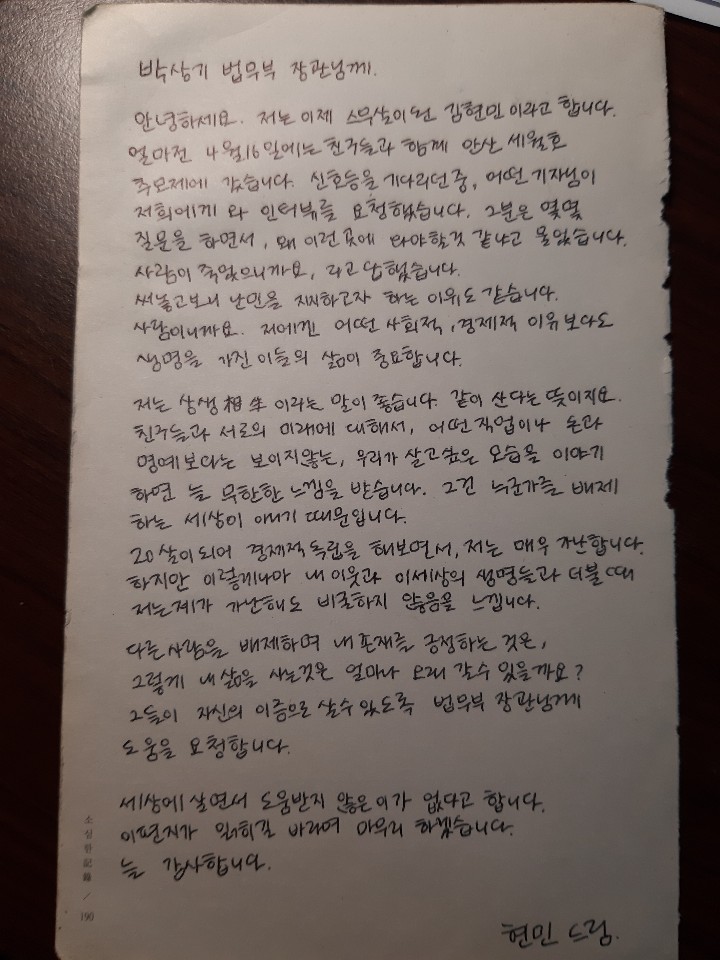 박상기 법무부 장관님께.
안녕하세요. 저는 이제 스무살이 된 김현민 이라고 합니다.
얼마전 4월16일에는 친구들과 함께 안산 세월호
추모제에 갔습니다. 신호등을 기다리던 중, 어떤 기자님이
저희에게 와 인터뷰를 요청했습니다. 그분은 몇몇
질문을 하면서, 왜 이런 곳에 와야할것 같냐고 물었습니다.
사람이 죽었으니까요, 라고 답했습니다.
써놓고보니 난민을 지지하고자 하는 이유도 같습니다.
사람이니까요. 저에겐 어떤 사회적, 경제적 이유보다도
생명을 가진 이들의 삶이 중요합니다.
저는 상생 相生 이라는 말이 좋습니다. 같이 산다는 뜻이지요.
친구들과 서로의 미래에 대해서, 어떤 직업이나 돈과
명예보다는 보이지않는, 우리가 살고싶은 모습을 이야기
하면 늘 무한한 느낌을 받습니다. 그건 누군가를 배제
하는 세상이 아니기 때문입니다.
20살이 되어 경제적 독립을 해보면서, 저는 매우 가난합니다.
하지만 이렇게나마 내 이웃과 이세상의 생명들과 더불 때
저는 제가 가난해도 비루하지 않음을 느낍니다.
다른 사람을 배제하며 내 존재를 긍정하는 것은,
그렇게 내 삶을 사는것은 얼마나 오래 갈수 있을까요?
그들이 자신의 이름으로 살수 있도록 법무부 장관님께
도움을 요청합니다.
세상에 살면서 도움받지 않은 이가 없다고 합니다.
이편지가 읽히길 바라며 마무리 하겠습니다.
늘 감사합니다.
현민 드림.
190